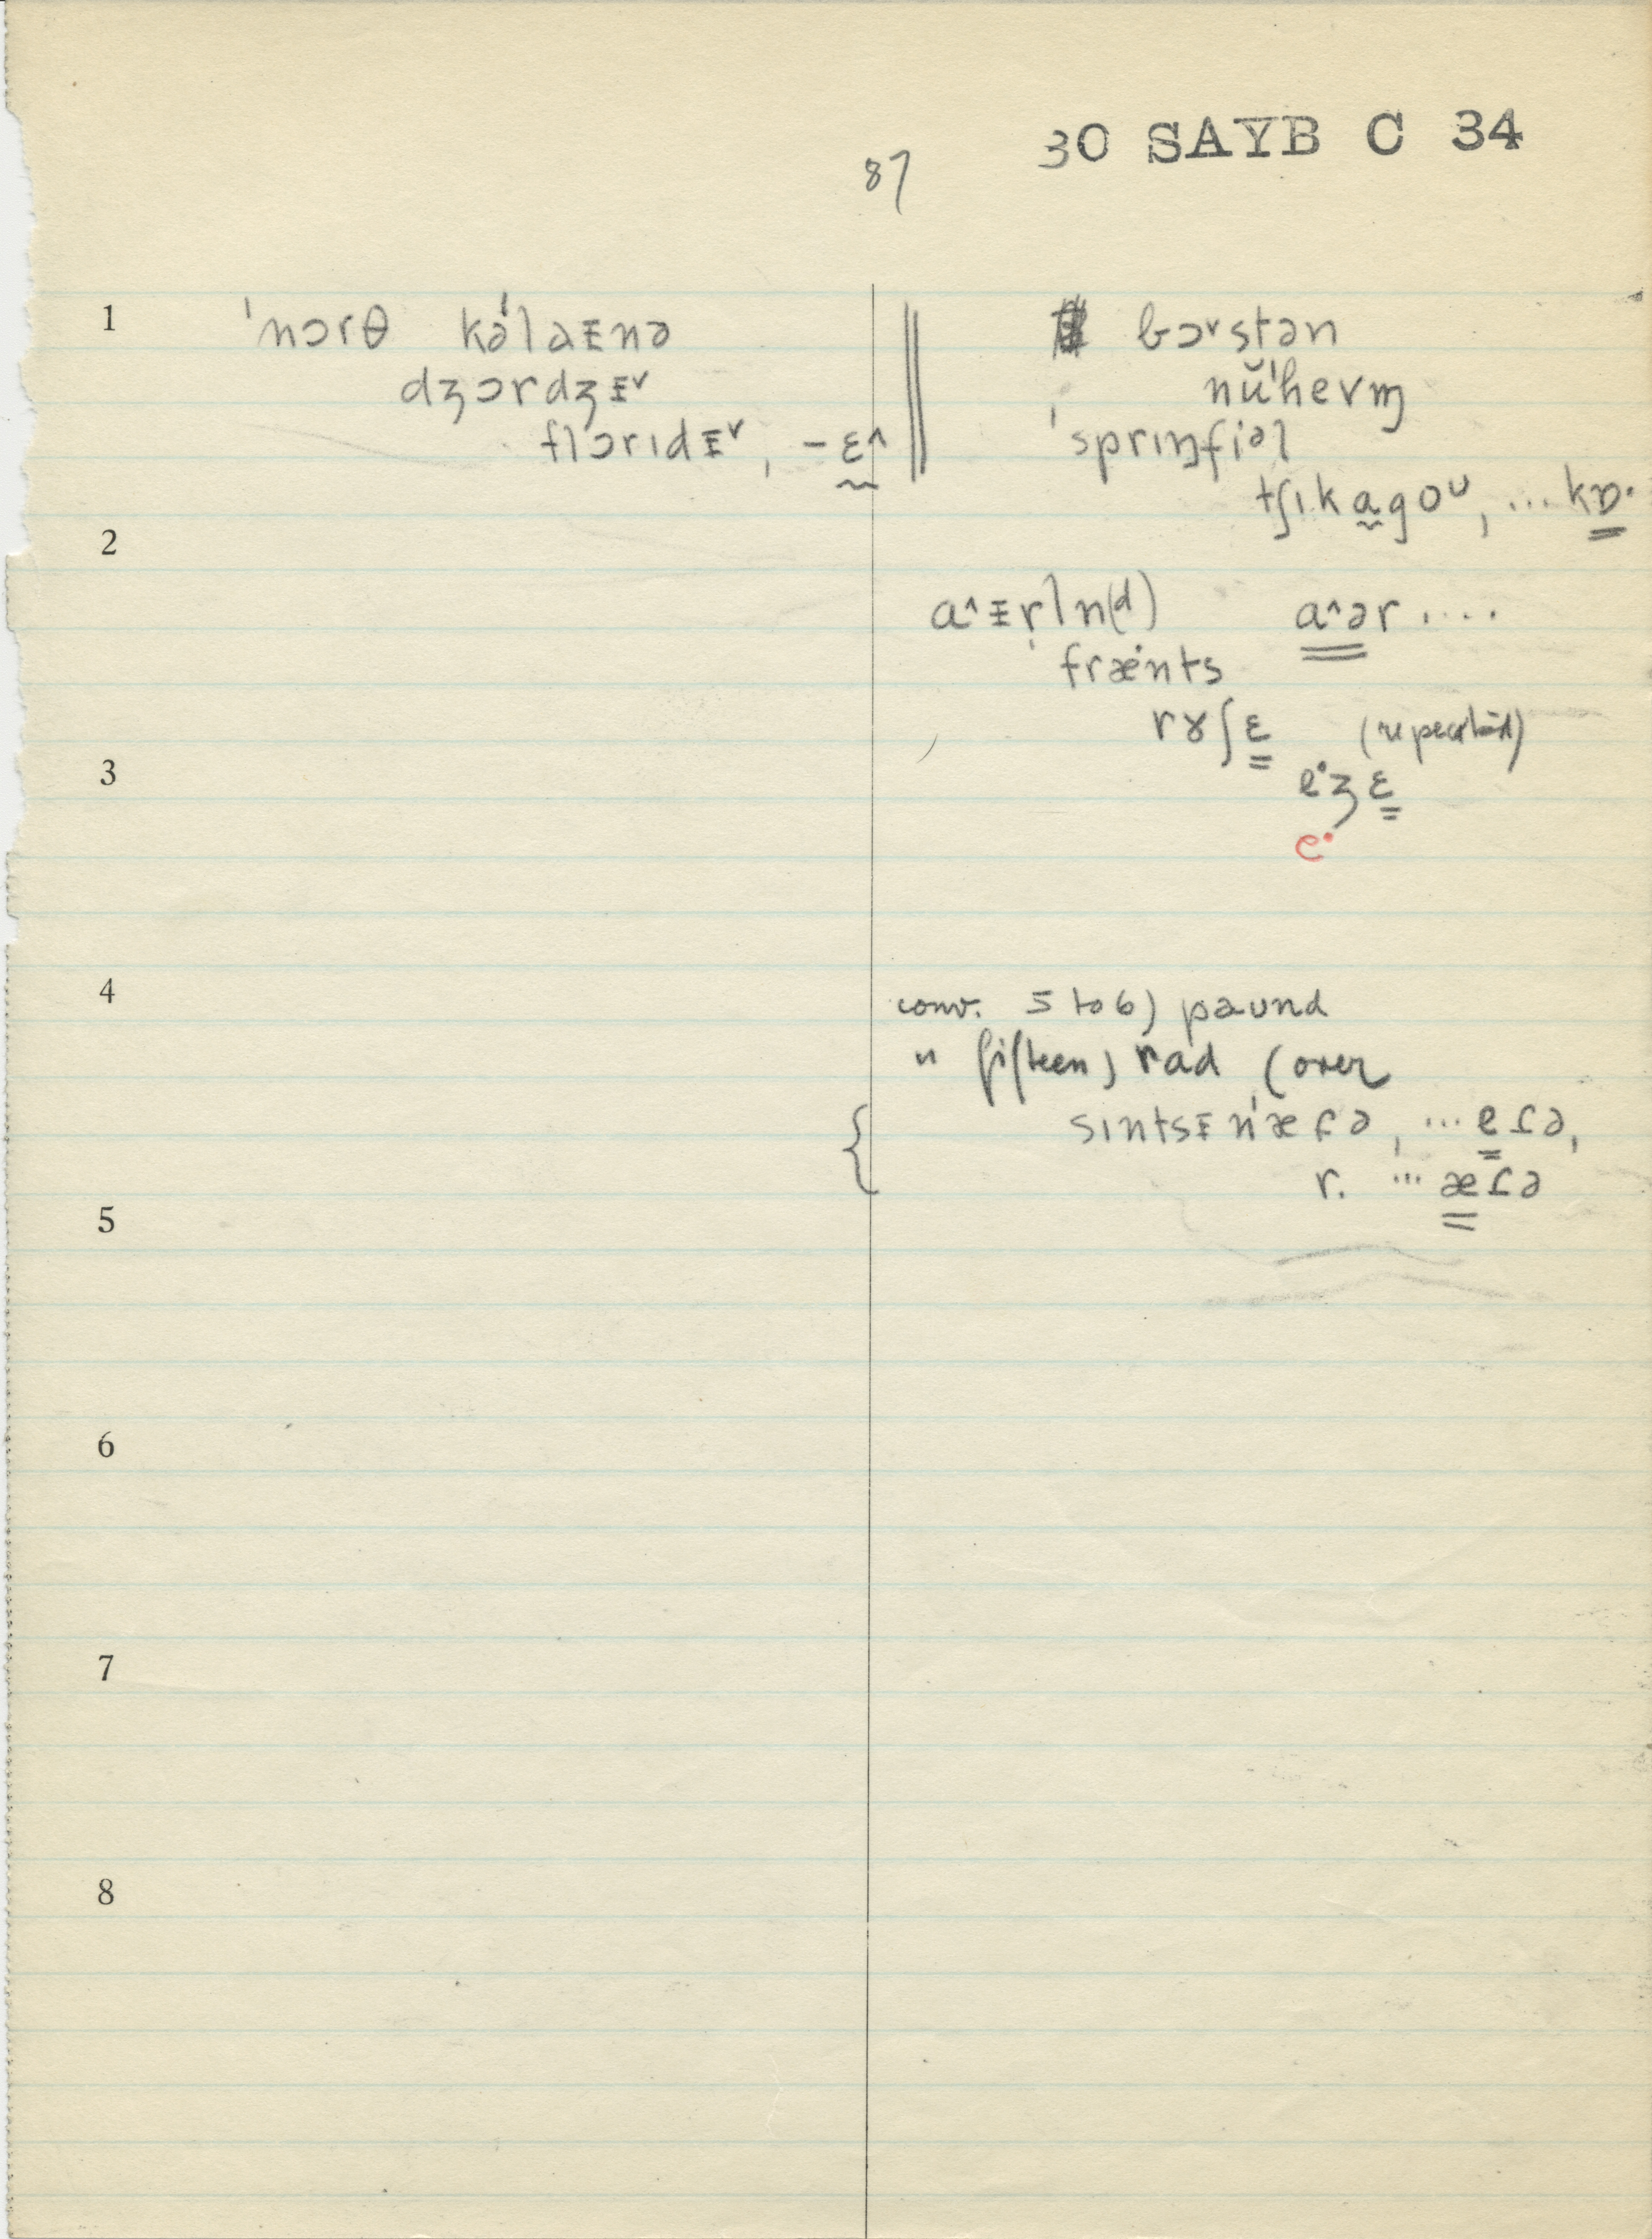 30 SAYB C 34
87
1 ˈnɔrθ kəˈlaᵻnə
dʒɔrdʒᵻ˅
flɔrɪdᵻ˅, -ɛ˄
bɔ˅stən
nŭˈhevɱ
ˈsprɪŋfiəl
tʃɪkagoᴜ, ...kɒ·
2
a˄ᵻrln(d) a˄ər ....
fræ·nts
rɤʃɛ (repeated)
3
e·ʒɛ
e·
4 conv. 5 to 6) paund
" fifteen) rad (over
sɪntsᵻnˈæɾə, ...eɾə,
r. ...æɾə
5
6
7
8